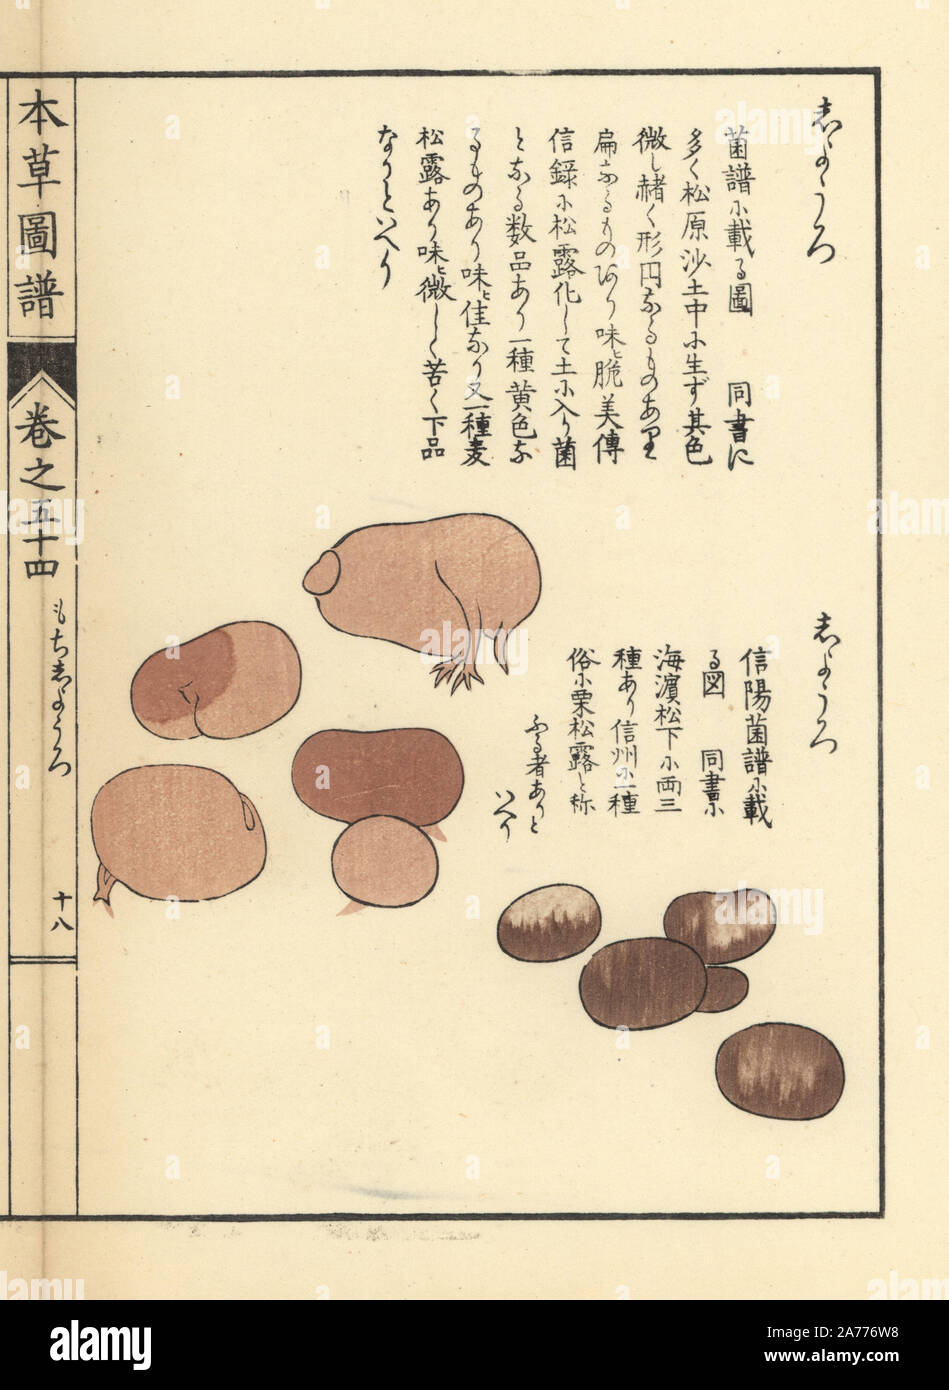 志ようろ
菌譜に載る圖　同書に
多く松原沙土中に生ず其色
微し赭く形円なるものあり
扁なるものあり味ヒ脆美傳
信録に松露化して土に入り菌
となる数品あり一種黄色な
るものあり味ヒ佳なり又一種麦
松露あり味ヒ微しく苦く下品
なりといへり
志ようろ
信陽菌譜に載
る図　同書に
海濵松下に両三
種あり信州に一種
俗に栗松露と称
ふる者ありと
いへり
本草圖譜
巻之五十四
もち志ようろ
十八
alamy
a
alamy
Image ID: 2A776W8
www.alamy.com